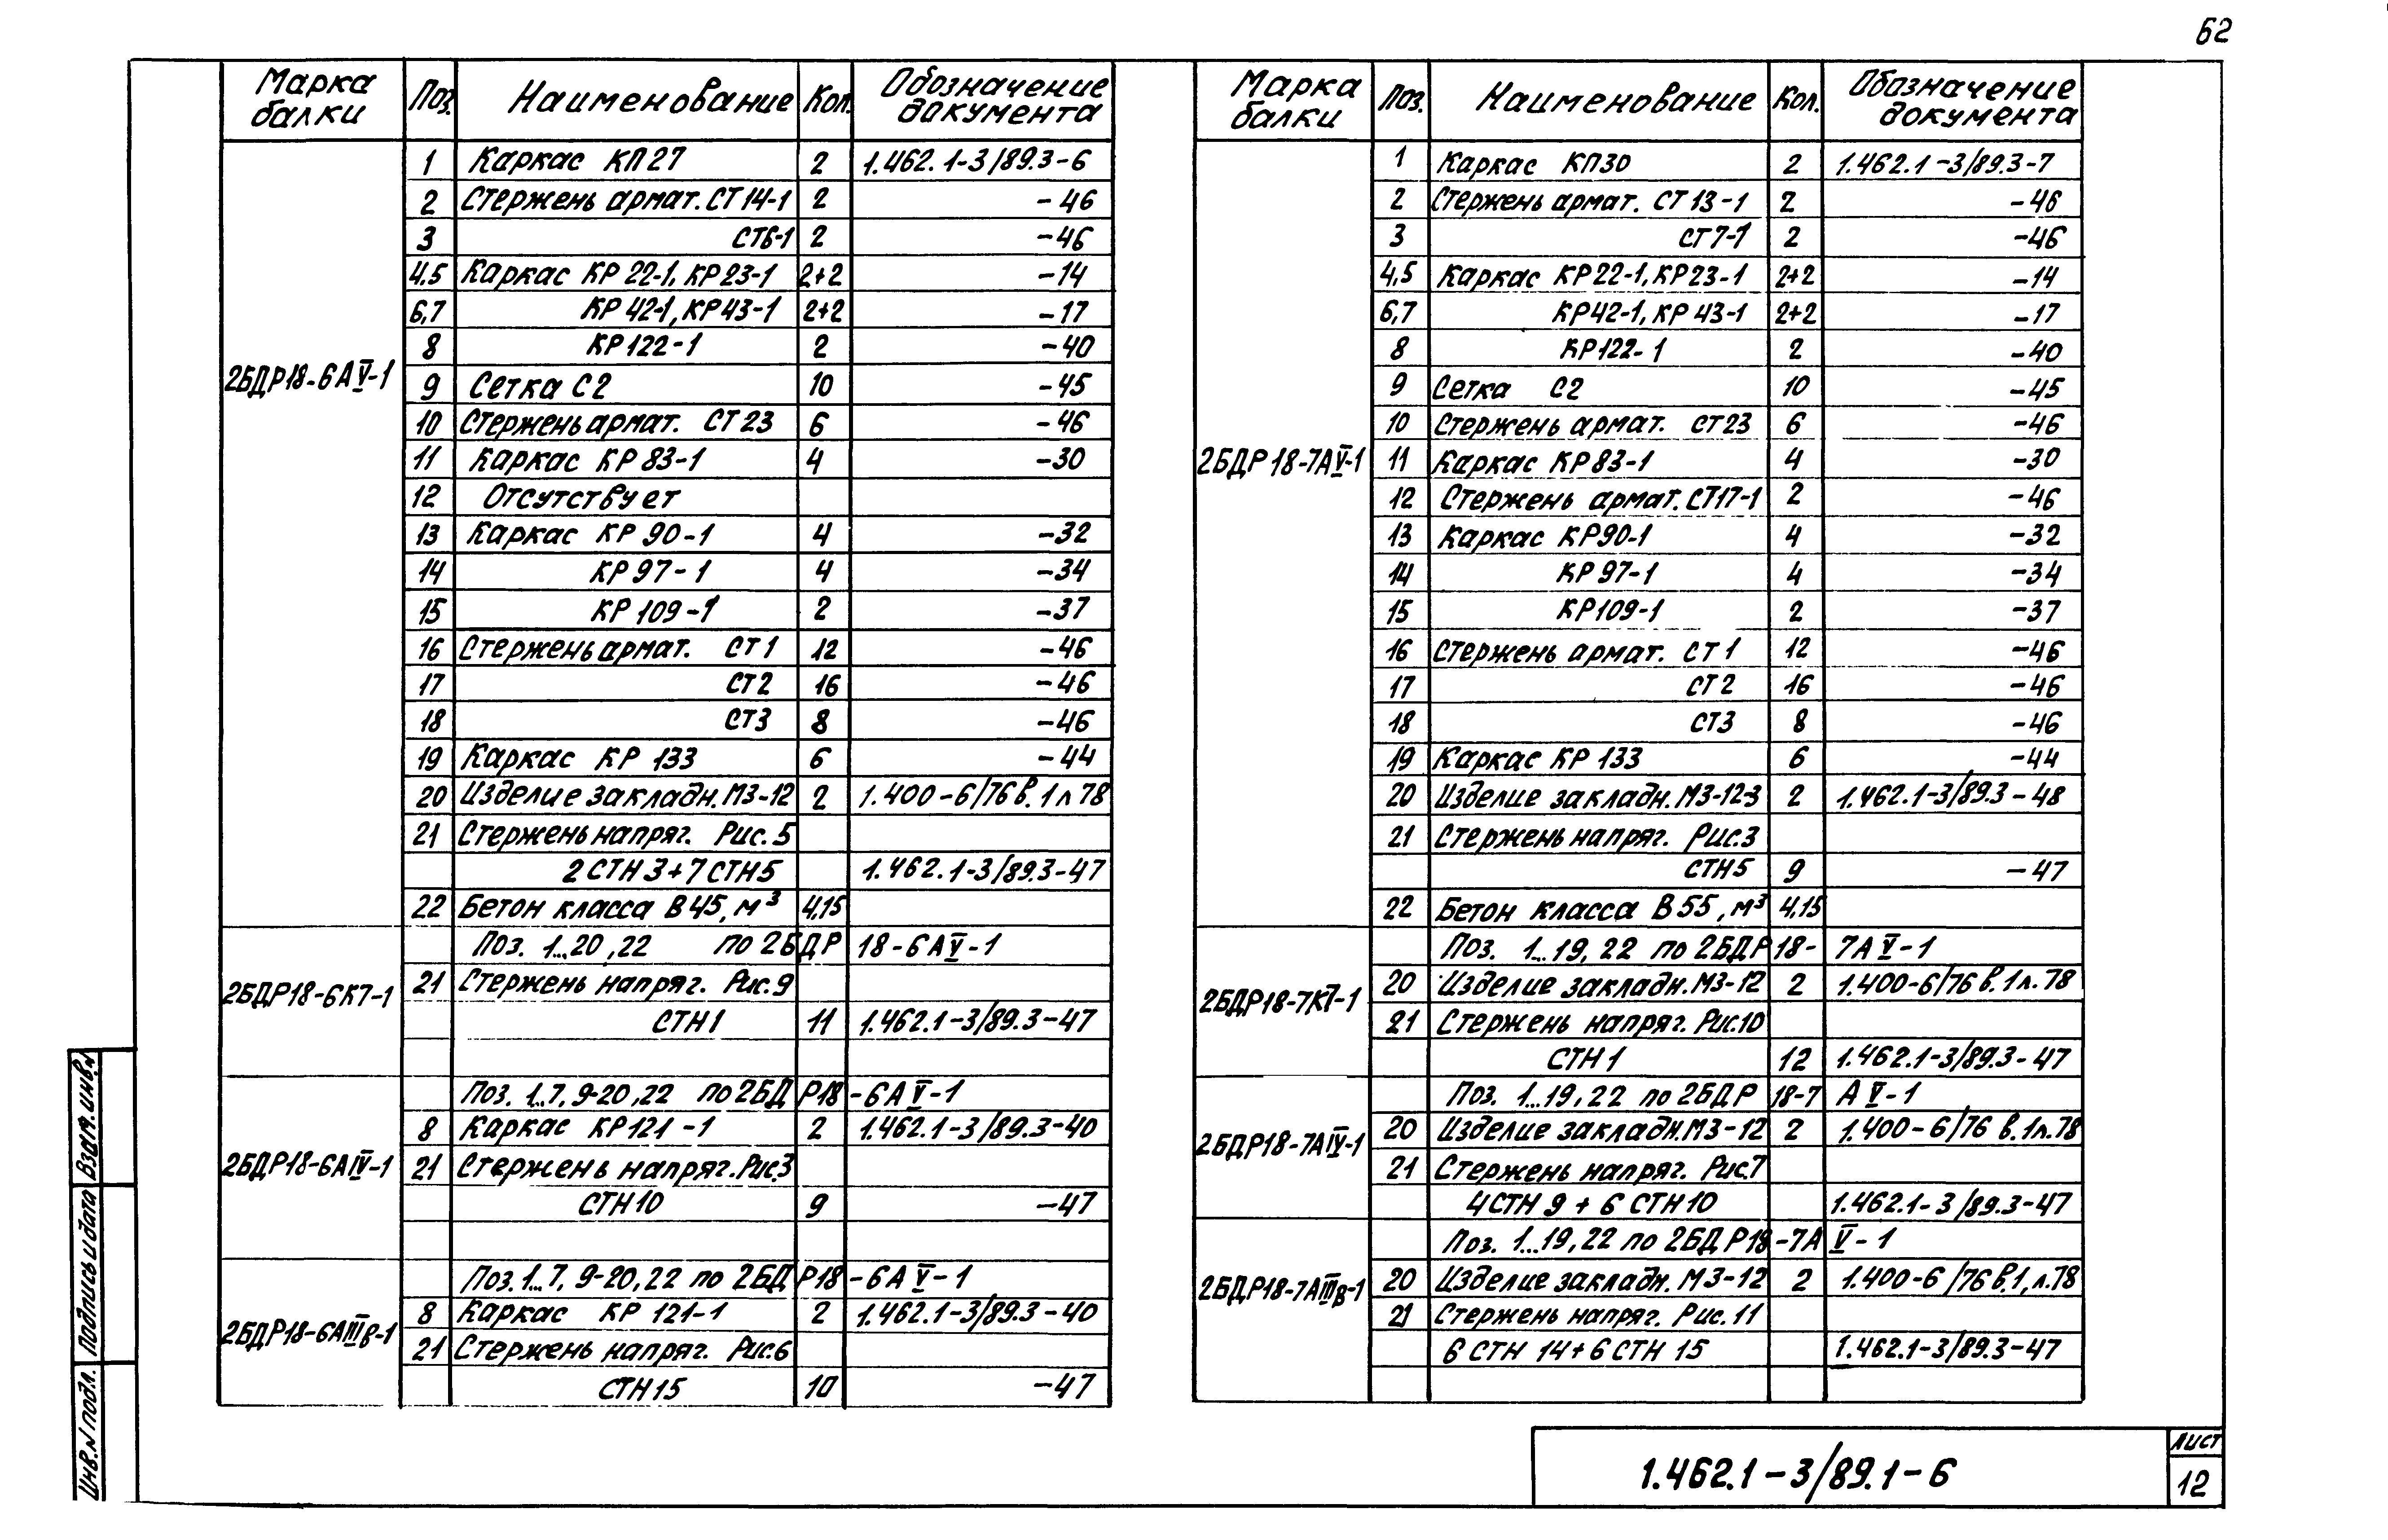 62
Марка балки Поз. Наименование Кол. Обозначение документа
2БДР18-6АV-1
1 Каркас КП27 2 1.462.1-3/89.3-6
2 Стержень армат. СТ14-1 2 -46
3 СТ6-1 2 -46
4,5 Каркас КР22-1, КР23-1 2+2 -14
6,7 КР42-1, КР43-1 2+2 -17
8 КР122-1 2 -40
9 Сетка С2 10 -45
10 Стержень армат. СТ23 6 -46
11 Каркас КР83-1 4 -30
12 Отсутствует
13 Каркас КР90-1 4 -32
14 КР97-1 4 -34
15 КР109-1 2 -37
16 Стержень армат. СТ1 12 -46
17 СТ2 16 -46
18 СТ3 8 -46
19 Каркас КР 133 6 -44
20 Изделие закладн. М3-12 2 1.400-6/76 в.1 л 78
21 Стержень напряг. Рис.5
2 СТН3+7 СТН5 1.462.1-3/89.3-47
22 Бетон класса В45, м³ 4,15
2БДР18-6К7-1
Поз. 1...20,22 по 2БДР 18-6АV-1
21 Стержень напряг. Рис.9
СТН1 11 1.462.1-3/89.3-47
2БДР18-6АIV-1
Поз. 1...7, 9-20,22 по 2БДР18-6АV-1
8 Каркас КР121-1 2 1.462.1-3/89.3-40
21 Стержень напряг. Рис.3
СТН10 9 -47
2БДР18-6АIIIв-1
Поз. 1...7, 9-20,22 по 2БДР18-6АV-1
8 Каркас КР 121-1 2 1.462.1-3/89.3-40
21 Стержень напряг. Рис.6
СТН15 10 -47
Марка балки Поз. Наименование Кол. Обозначение документа
2БДР18-7АV-1
1 Каркас КП30 2 1.462.1-3/89.3-7
2 Стержень армат. СТ13-1 2 -46
3 СТ7-1 2 -46
4,5 Каркас КР22-1, КР23-1 2+2 -14
6,7 КР42-1, КР43-1 2+2 -17
8 КР122-1 2 -40
9 Сетка С2 10 -45
10 Стержень армат. СТ23 6 -46
11 Каркас КР83-1 4 -30
12 Стержень армат. СТ17-1 2 -46
13 Каркас КР90-1 4 -32
14 КР97-1 4 -34
15 КР109-1 2 -37
16 Стержень армат. СТ1 12 -46
17 СТ2 16 -46
18 СТ3 8 -46
19 Каркас КР 133 6 -44
20 Изделие закладн. М3-12-3 2 1.462.1-3/89.3-48
21 Стержень напряг. Рис.3
СТН5 9 -47
22 Бетон класса В55, м³ 4,15
2БДР18-7К7-1
Поз. 1...19, 22 по 2БДР18-7АV-1
20 Изделие закладн. М3-12 2 1.400-6/76 в.1 л.78
21 Стержень напряг. Рис.10
СТН1 12 1.462.1-3/89.3-47
2БДР18-7АIV-1
Поз. 1...19, 22 по 2БДР 18-7 АV-1
20 Изделие закладн. М3-12 2 1.400-6/76 в.1л.78
21 Стержень напряг. Рис.7
4СТН9 + 6 СТН10 1.462.1-3/89.3-47
2БДР18-7АIIIв-1
Поз. 1...19, 22 по 2БДР18-7АV-1
20 Изделие закладн. М3-12 2 1.400-6/76 в.1, л.78
21 Стержень напряг. Рис.11
6 СТН 14+6 СТН 15 1.462.1-3/89.3-47
Инв.N подл. Подпись и дата Взам.инв.N
1.462.1-3/89.1-6
Лист
12